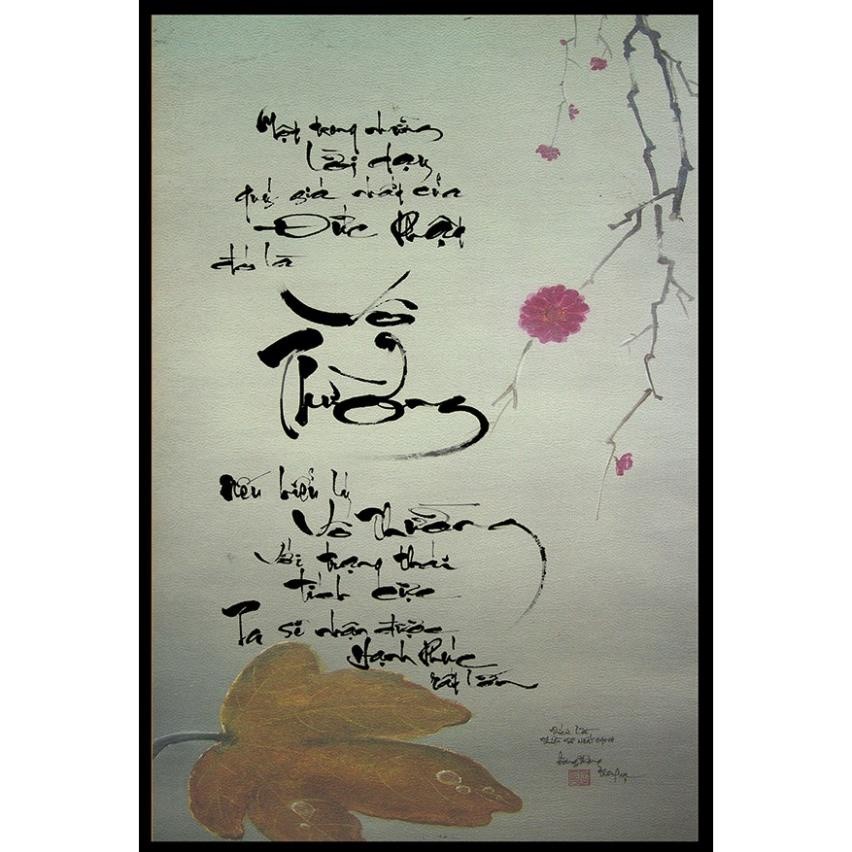 Một trong những
lời dạy
quý giá nhất của
Đức Phật
đó là
Vô
Thường
nếu hiểu lý
Vô Thường
Với trạng thái
tích cực
Ta sẽ nhận được
Hạnh Phúc
rất lớn
Thiền Sư Nhất Hạnh